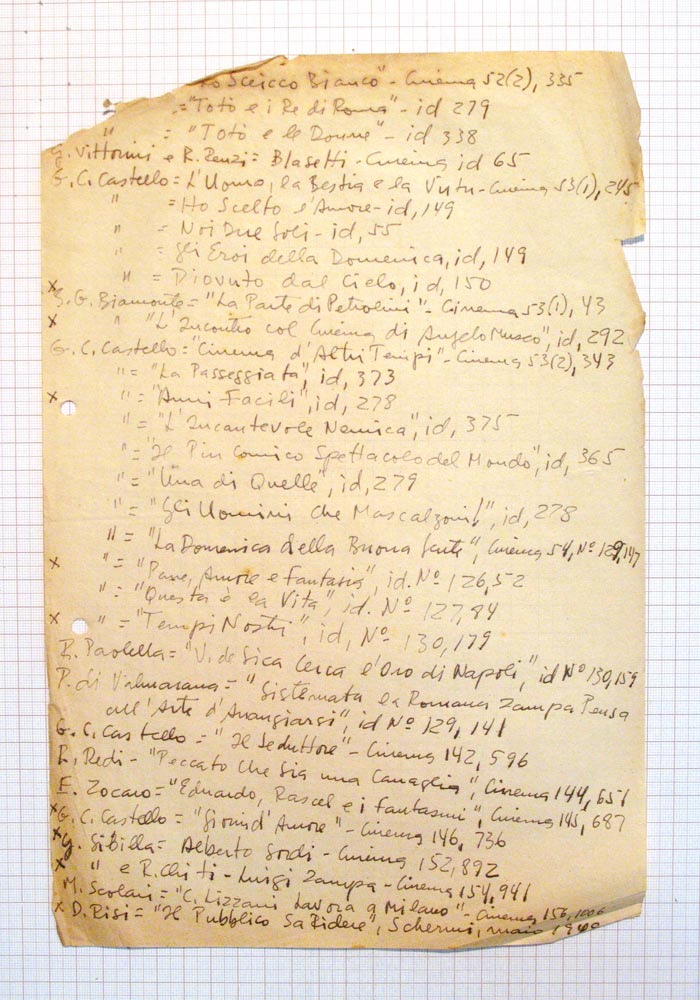 Lo Sceicco Bianco" - Cinema 52(2), 335
" = "Totò e i Re di Roma" - id 279
" = "Totò e le Donne" - id 338
G. Vittorini e R. Renzi = Blasetti - Cinema id 65
G. C. Castello = L'Uomo, la Bestia e la Virtù - Cinema 53(1), 245
" = Ho Scelto l'Amore - id, 149
" = Noi Due Soli - id, 55
" = Gli Eroi della Domenica, id, 149
" = Piovuto dal Cielo, id, 150
x S. G. Biamonte = "La Parte di Petrolini" - Cinema 53(1), 43
x " "L'Incontro col Cinema di Angelo Musco", id, 292
G. C. Castello = "Cinema d'Altri Tempi" - Cinema 53(2), 343
" = "La Passeggiata", id, 373
x " = "Anni Facili", id, 278
" = "L'Incantevole Nemica", id, 375
" = "Il Più Comico Spettacolo del Mondo", id, 365
" = "Una di Quelle", id, 279
" = "Gli Uomini Che Mascalzoni!", id, 278
" = "La Domenica della Buona Gente", Cinema 54, Nº 129, 147
x " = "Pane, Amore e Fantasia", id. Nº 126, 52
" = "Questa è la Vita", id. Nº 127, 84
x " = "Tempi Nostri", id, Nº 130, 179
R. Paolella = "V. de Sica Cerca l'Oro di Napoli", id Nº 130, 159
P. di Valmarana = "Sistemata la Romana Zampa Pensa
all'Arte d'Arrangiarsi", id Nº 129, 141
G. C. Castello = "Il Seduttore" - Cinema 142, 596
R. Redi - "Peccato Che Sia una Canaglia", Cinema 144, 651
E. Zocaro = "Eduardo, Rascel e i Fantasmi", Cinema 145, 687
x G. C. Castello = "Giorni d'Amore" - Cinema 146, 736
x G. Sibilla = Alberto Sordi - Cinema 152, 892
x " e R. Chiti - Luigi Zampa - Cinema 154, 941
M. Scolari = "C. Lizzani Lavora a Milano" - Cinema 156, 1006
x D. Risi = "Il Pubblico Sa Ridere", Schermi, maio 1960